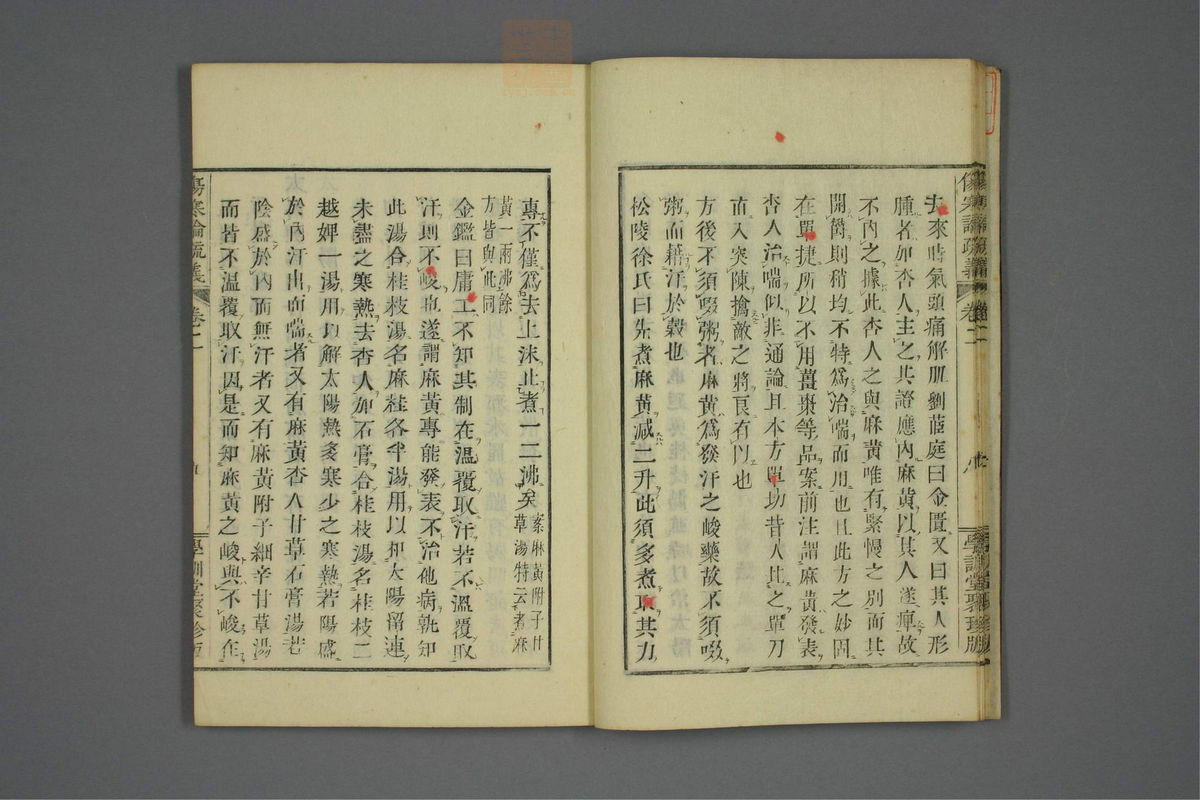 傷寒論疏義 卷二 學訓堂聚珍版
去來時氣頭痛解肌劉茝庭曰金匱又曰其人形
腫者加杏人主之其證應內麻黃以其人遂痺故
不內之據此杏人之與麻黃唯有緊慢之別而其
開鬱則稍均不特爲治喘而用也且此方之妙固
在單捷所以不用薑棗等品案前注謂麻黃發表
杏人治喘似非通論且本方單功昔人比之單刀
直入突陳擒敵之將良有以也
方後不須啜粥者麻黃爲發汗之峻藥故不須啜
粥而藉汗於穀也
松陵徐氏曰先煮麻黃減二升此須多煮取其力
專不僅爲去上沫止煮一二沸矣案麻黃附子甘草湯特云煮麻
黃一兩沸餘方皆與此同
金鑑曰庸工不知其制在溫覆取汗若不溫覆取
汗則不峻也遂謂麻黃專能發表不治他病孰知
此湯合桂枝湯名麻桂各半湯用以和太陽留連
未盡之寒熱去杏人加石膏合桂枝湯名桂枝二
越婢一湯用以解太陽熱多寒少之寒熱若陽盛
於內汗出而喘者又有麻黃杏人甘草石膏湯若
陰盛於內而無汗者又有麻黃附子細辛甘草湯
而皆不溫覆取汗因是而知麻黃之峻與不峻在
傷寒論疏義 卷二 九 學訓堂聚珍版